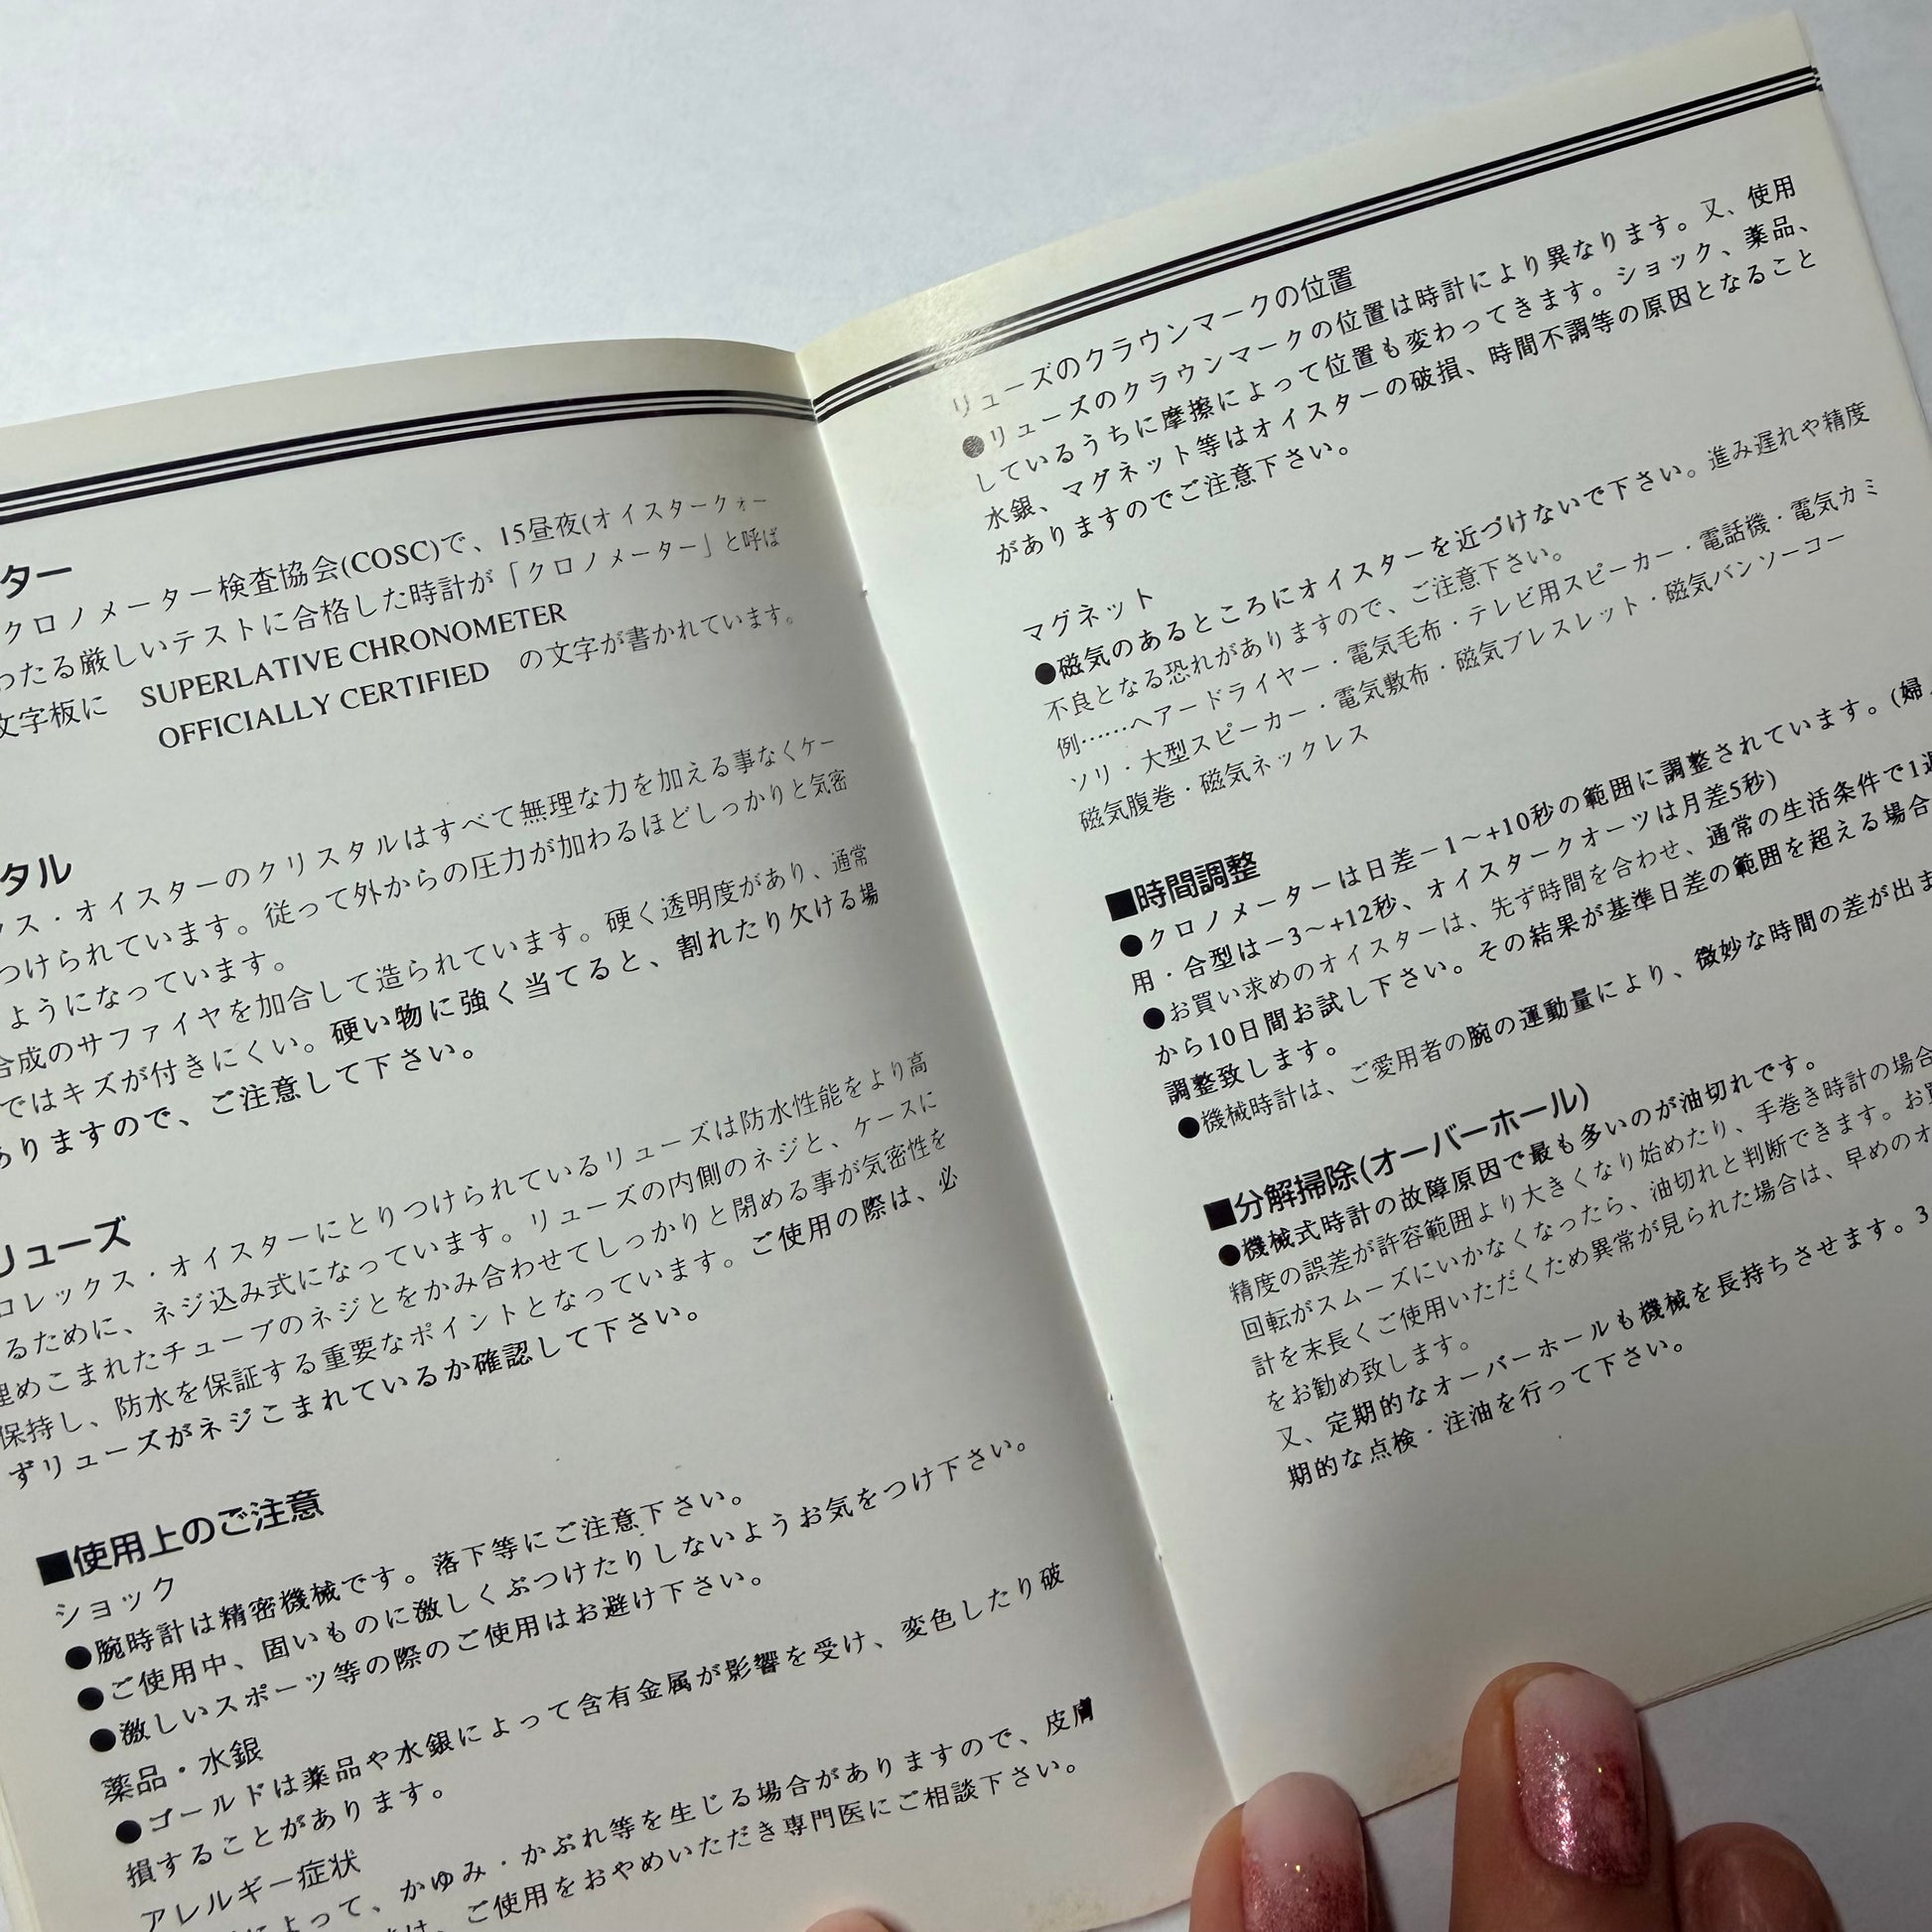 ター
クロノメーター検査協会(COSC)で、15昼夜(オイスタークォー
わたる厳しいテストに合格した時計が「クロノメーター」と呼ば
文字板に SUPERLATIVE CHRONOMETER
OFFICIALLY CERTIFIED の文字が書かれています。
タル
クス・オイスターのクリスタルはすべて無理な力を加える事なくケー
つけられています。従って外からの圧力が加わるほどしっかりと気密
ようになっています。
合成のサファイヤを加合して造られています。硬く透明度があり、通常
ではキズが付きにくい。硬い物に強く当てると、割れたり欠ける場
ありますので、ご注意して下さい。
リューズ
ロレックス・オイスターにとりつけられているリューズは防水性能をより高
るために、ネジ込み式になっています。リューズの内側のネジと、ケースに
埋めこまれたチューブのネジとをかみ合わせてしっかりと閉める事が気密性を
保持し、防水を保証する重要なポイントとなっています。ご使用の際は、必
ずリューズがネジこまれているか確認して下さい。
■使用上のご注意
ショック
●腕時計は精密機械です。落下等にご注意下さい。
●ご使用中、固いものに激しくぶつけたりしないようお気をつけ下さい。
●激しいスポーツ等の際のご使用はお避け下さい。
薬品・水銀
●ゴールドは薬品や水銀によって含有金属が影響を受け、変色したり破
損することがあります。
アレルギー症状
によって、かゆみ・かぶれ等を生じる場合がありますので、皮膚
は、ご使用をおやめいただき専門医にご相談下さい。
リューズのクラウンマークの位置
●リューズのクラウンマークの位置は時計により異なります。又、使用
しているうちに摩擦によって位置も変わってきます。ショック、薬品、
水銀、マグネット等はオイスターの破損、時間不調等の原因となること
がありますのでご注意下さい。
マグネット
●磁気のあるところにオイスターを近づけないで下さい。進み遅れや精度
不良となる恐れがありますので、ご注意下さい。
例……ヘアードライヤー・電気毛布・テレビ用スピーカー・電話機・電気カミ
ソリ・大型スピーカー・電気敷布・磁気ブレスレット・磁気バンソーコー
磁気腹巻・磁気ネックレス
■時間調整
●クロノメーターは日差－1～+10秒の範囲に調整されています。(婦
用・合型は－3～+12秒、オイスタークオーツは月差5秒)
●お買い求めのオイスターは、先ず時間を合わせ、通常の生活条件で1週
から10日間お試し下さい。その結果が基準日差の範囲を超える場合
調整致します。
●機械時計は、ご愛用者の腕の運動量により、微妙な時間の差が出ま
■分解掃除(オーバーホール)
●機械式時計の故障原因で最も多いのが油切れです。
精度の誤差が許容範囲より大きくなり始めたり、手巻き時計の場合
回転がスムーズにいかなくなったら、油切れと判断できます。お買
計を末長くご使用いただくため異常が見られた場合は、早めのオ
をお勧め致します。
又、定期的なオーバーホールも機械を長持ちさせます。3
期的な点検・注油を行って下さい。